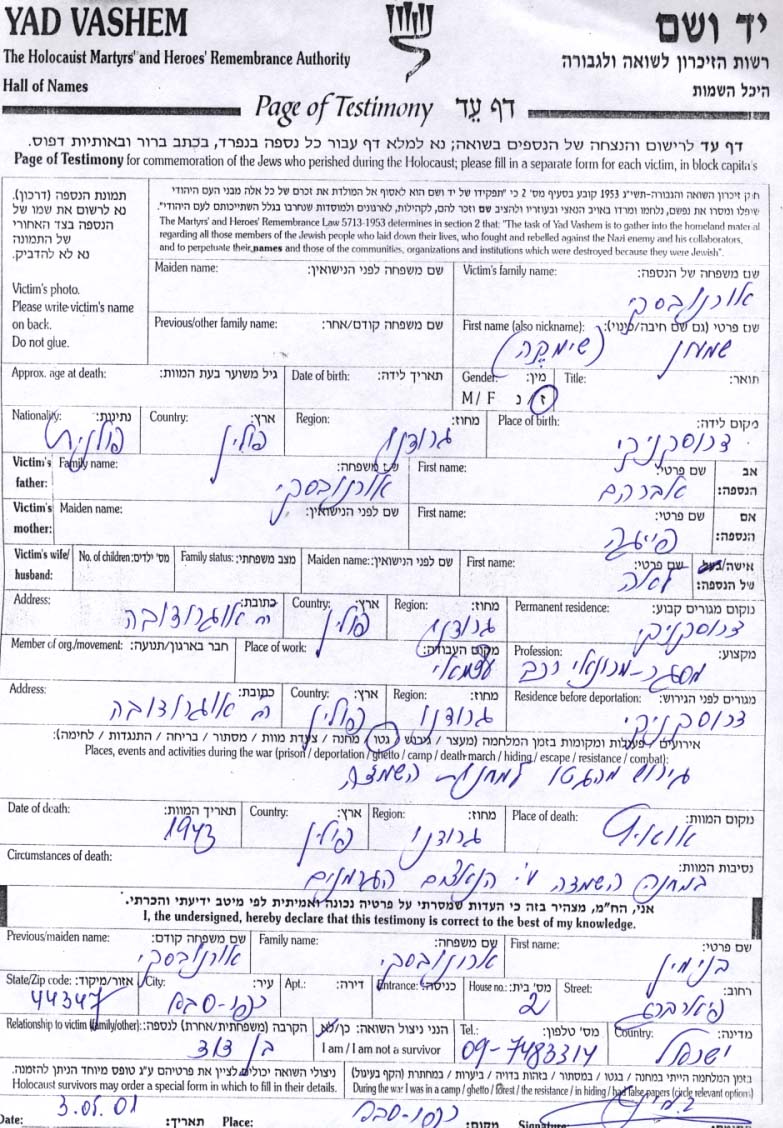 YAD VASHEM
יד ושם
The Holocaust Martyrs' and Heroes' Remembrance Authority
רשות הזיכרון לשואה ולגבורה
Hall of Names
היכל השמות
Page of Testimony דף עֵד
דף עד לרישום והנצחה של הנספים בשואה; נא למלא דף עבור כל נספה בנפרד, בכתב ברור ובאותיות דפוס.
Page of Testimony for commemoration of the Jews who perished during the Holocaust; please fill in a separate form for each victim, in block capitals
תמונת הנספה (דרכון).
נא לרשום את שמו של
הנספה בצד האחורי
של התמונה
נא לא להדביק.
Victim's photo.
Please write victim's name
on back.
Do not glue.
חוק זיכרון השואה והגבורה-תשי"ג 1953 קובע בסעיף מס' 2 כי "תפקידו של יד ושם הוא לאסוף אל המולדת את זכרם של כל אלה מבני העם היהודי
שנפלו ומסרו את נפשם, נלחמו ומרדו באויב הנאצי ובעוזריו ולהציב שם וזכר להם, לקהילות, לארגונים ולמוסדות שנחרבו בגלל השתייכותם לעם היהודי".
The Martyrs' and Heroes' Remembrance Law 5713-1953 determines in section 2 that: "The task of Yad Vashem is to gather into the homeland material
regarding all those members of the Jewish people who laid down their lives, who fought and rebelled against the Nazi enemy and his collaborators,
and to perpetuate their names and those of the communities, organizations and institutions which were destroyed because they were Jewish".
Maiden name: שם משפחה לפני הנישואין: Victim's family name: שם משפחה של הנספה:
אורנובסקי
Previous/other family name: שם משפחה קודם/אחר: First name (also nickname): שם פרטי (גם שם חיבה/כינוי):
שמעון (שימקה)
Approx. age at death: גיל משוער בעת המוות: Date of birth: תאריך לידה: Gender: מין: Title: תואר:
M / F ז / נ
Nationality: נתינות: Country: ארץ: Region: מחוז: Place of birth: מקום לידה:
פולנית פולין גרודנו דרוסקניקי
Victim's father: Family name: שם משפחה: First name: שם פרטי: אב הנספה:
אורנובסקי אברהם
Victim's mother: Maiden name: שם לפני הנישואין: First name: שם פרטי: אם הנספה:
פייגה
Victim's wife/ husband: No. of children: מס' ילדים: Family status: מצב משפחתי: Maiden name: שם לפני הנישואין: First name: שם פרטי: אישה/בעל של הנספה:
לאה
Address: כתובת: Country: ארץ: Region: מחוז: Permanent residence: מקום מגורים קבוע:
רח אוגרודובה פולין גרודנו דרוסקניקי
Member of org./movement: חבר בארגון/תנועה: Place of work: מקום העבודה: Profession: מקצוע:
עצמאי מסגר-מכונאי רכב
Address: כתובת: Country: ארץ: Region: מחוז: Residence before deportation: מגורים לפני הגירוש:
רח אוגרודובה פולין גרודנו דרוסקניקי
אירועים / פעולות ומקומות בזמן המלחמה (מעצר / גירוש / גטו / מחנה / צעדת מוות / מסתור / בריחה / התנגדות / לחימה):
Places, events and activities during the war (prison / deportation / ghetto / camp / death-march / hiding / escape / resistance / combat):
גירוש מהגטו למחנות השמדה
Date of death: תאריך המוות: Country: ארץ: Region: מחוז: Place of death: מקום המוות:
1943 פולין גרודנו
Circumstances of death: נסיבות המוות:
במחנה השמדה ע"י הנאצים הגרמנים
אני, החי"מ, מצהיר בזה כי העדות שמסרתי על פרטיה נכונה ואמיתית לפי מיטב ידיעתי והכרתי.
I, the undersigned, hereby declare that this testimony is correct to the best of my knowledge.
Previous/maiden name: שם משפחה קודם: Family name: שם משפחה: First name: שם פרטי:
אורנובסקי ארונובסקי בנימין
State/Zip code: אזור/מיקוד: City: עיר: Apt.: דירה: Entrance: כניסה: House no.: מס' בית: Street: רחוב:
44347 כפר-סבא 2
Relationship to victim (family/other): הקרבה (משפחתית/אחרת) לנספה: הנני ניצול השואה: כן/לא Tel.: מס' טלפון: Country: מדינה:
בן דוד I am / I am not a survivor 09-7483314 ישראל
ניצולי השואה יכולים לציין את פרטיהם ע"ג טופס מיוחד הניתן להזמנה. בזמן המלחמה הייתי במחנה / בגטו / במסתור / בזהות בדויה / ביערות / במחתרת (הקף בעיגול)
Holocaust survivors may order a special form in which to fill in their details. During the war I was in a camp / ghetto / forest / the resistance / in hiding / had false papers (circle relevant option)
Date: 3.05.01 תאריך: Place: כפר-סבא מקום: Signature: